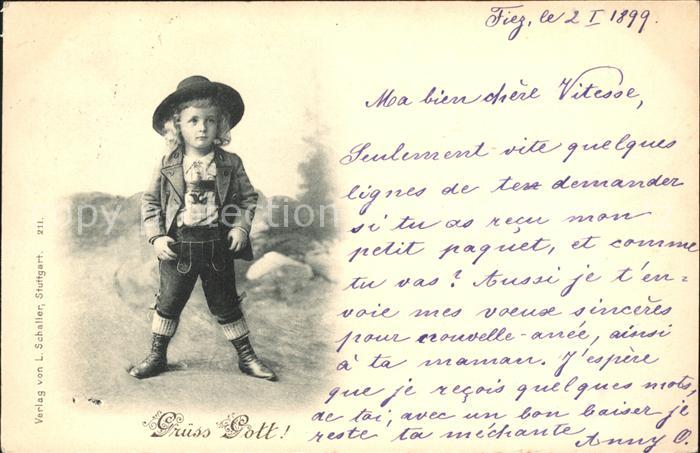 Fiez, le 2 I 1899.
Ma bien chère Vitesse,
Seulement vite quelques
lignes de te demander
si tu as reçu mon
petit paquet, et comme
tu vas? Aussi je t'en-
voie mes voeux sincères
pour nouvelle-anée, ainsi
à ta maman. J'espère
que je reçois quelques mots,
de toi, avec un bon baiser je
reste ta méchante
Anny O.
Grüss Gott!
Verlag von L. Schaller, Stuttgart. 211.